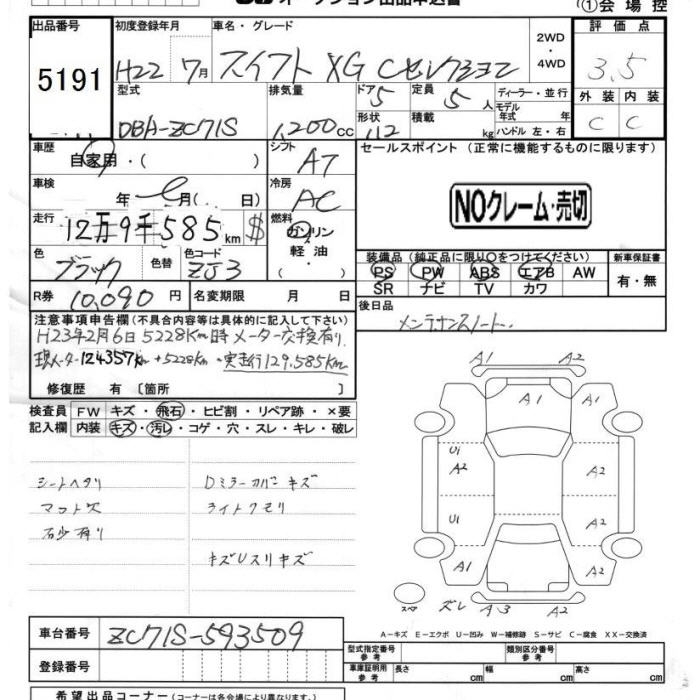 オークション出品申込書
①会場控
出品番号 5191
初度登録年月 H22 7月
車名・グレード スイフト XG Cセレクション
2WD・4WD
評価点 3.5
外装 C 内装 C
型式 DBA-ZC71S
排気量 1,200cc
ドア 5
形状 112
定員 5人
積載 kg
ディーラー・並行
モデル年式 年
ハンドル 左・右
車歴 自家用・( )
シフト AT
セールスポイント (正常に機能するものに限ります)
車検 年 月(. . 日)
冷房 AC
NOクレーム・売切
走行 12万9千585km $
燃料 ガソリン・軽油
色 ブラック 色替 色コード ZJ3
装備品 (純正品に限り○をつけてください)
PS PW ABS エアB AW
SR ナビ TV カワ
新車保証書 有・無
R券 10,090円
名変期限 月 日
後日品 メンテナンスノート
注意事項申告欄(不具合内容等は具体的に記入して下さい)
H23年2月6日 5228Km時 メーター交換有り.
現メーター124357Km + 5228Km = 実走行129.585Km
修復歴 有〔箇所 〕
検査員記入欄
FW キズ・飛石・ヒビ割・リペア跡・×要
内装 キズ・汚レ・コゲ・穴・スレ・キレ・破レ
シートヘタリ Dミラーカバーキズ
マット欠 ライトクモリ
石少有り
キズUスリキズ
A1 A2
A1 A1 A2
U1
A2 A2
U1 A2
A1 A2
スペア ズレ A3 A2
A-キズ E-エクボ U-凹み W-補修跡 S-サビ C-腐食 XX-交換済
車台番号 ZC71S-593509
登録番号
型式指定番号 参考
類別区分番号 参考
車庫証明用 参考 長さ cm 幅 cm 高さ cm
希望出品コーナー(コーナーは各会場により異なります。)